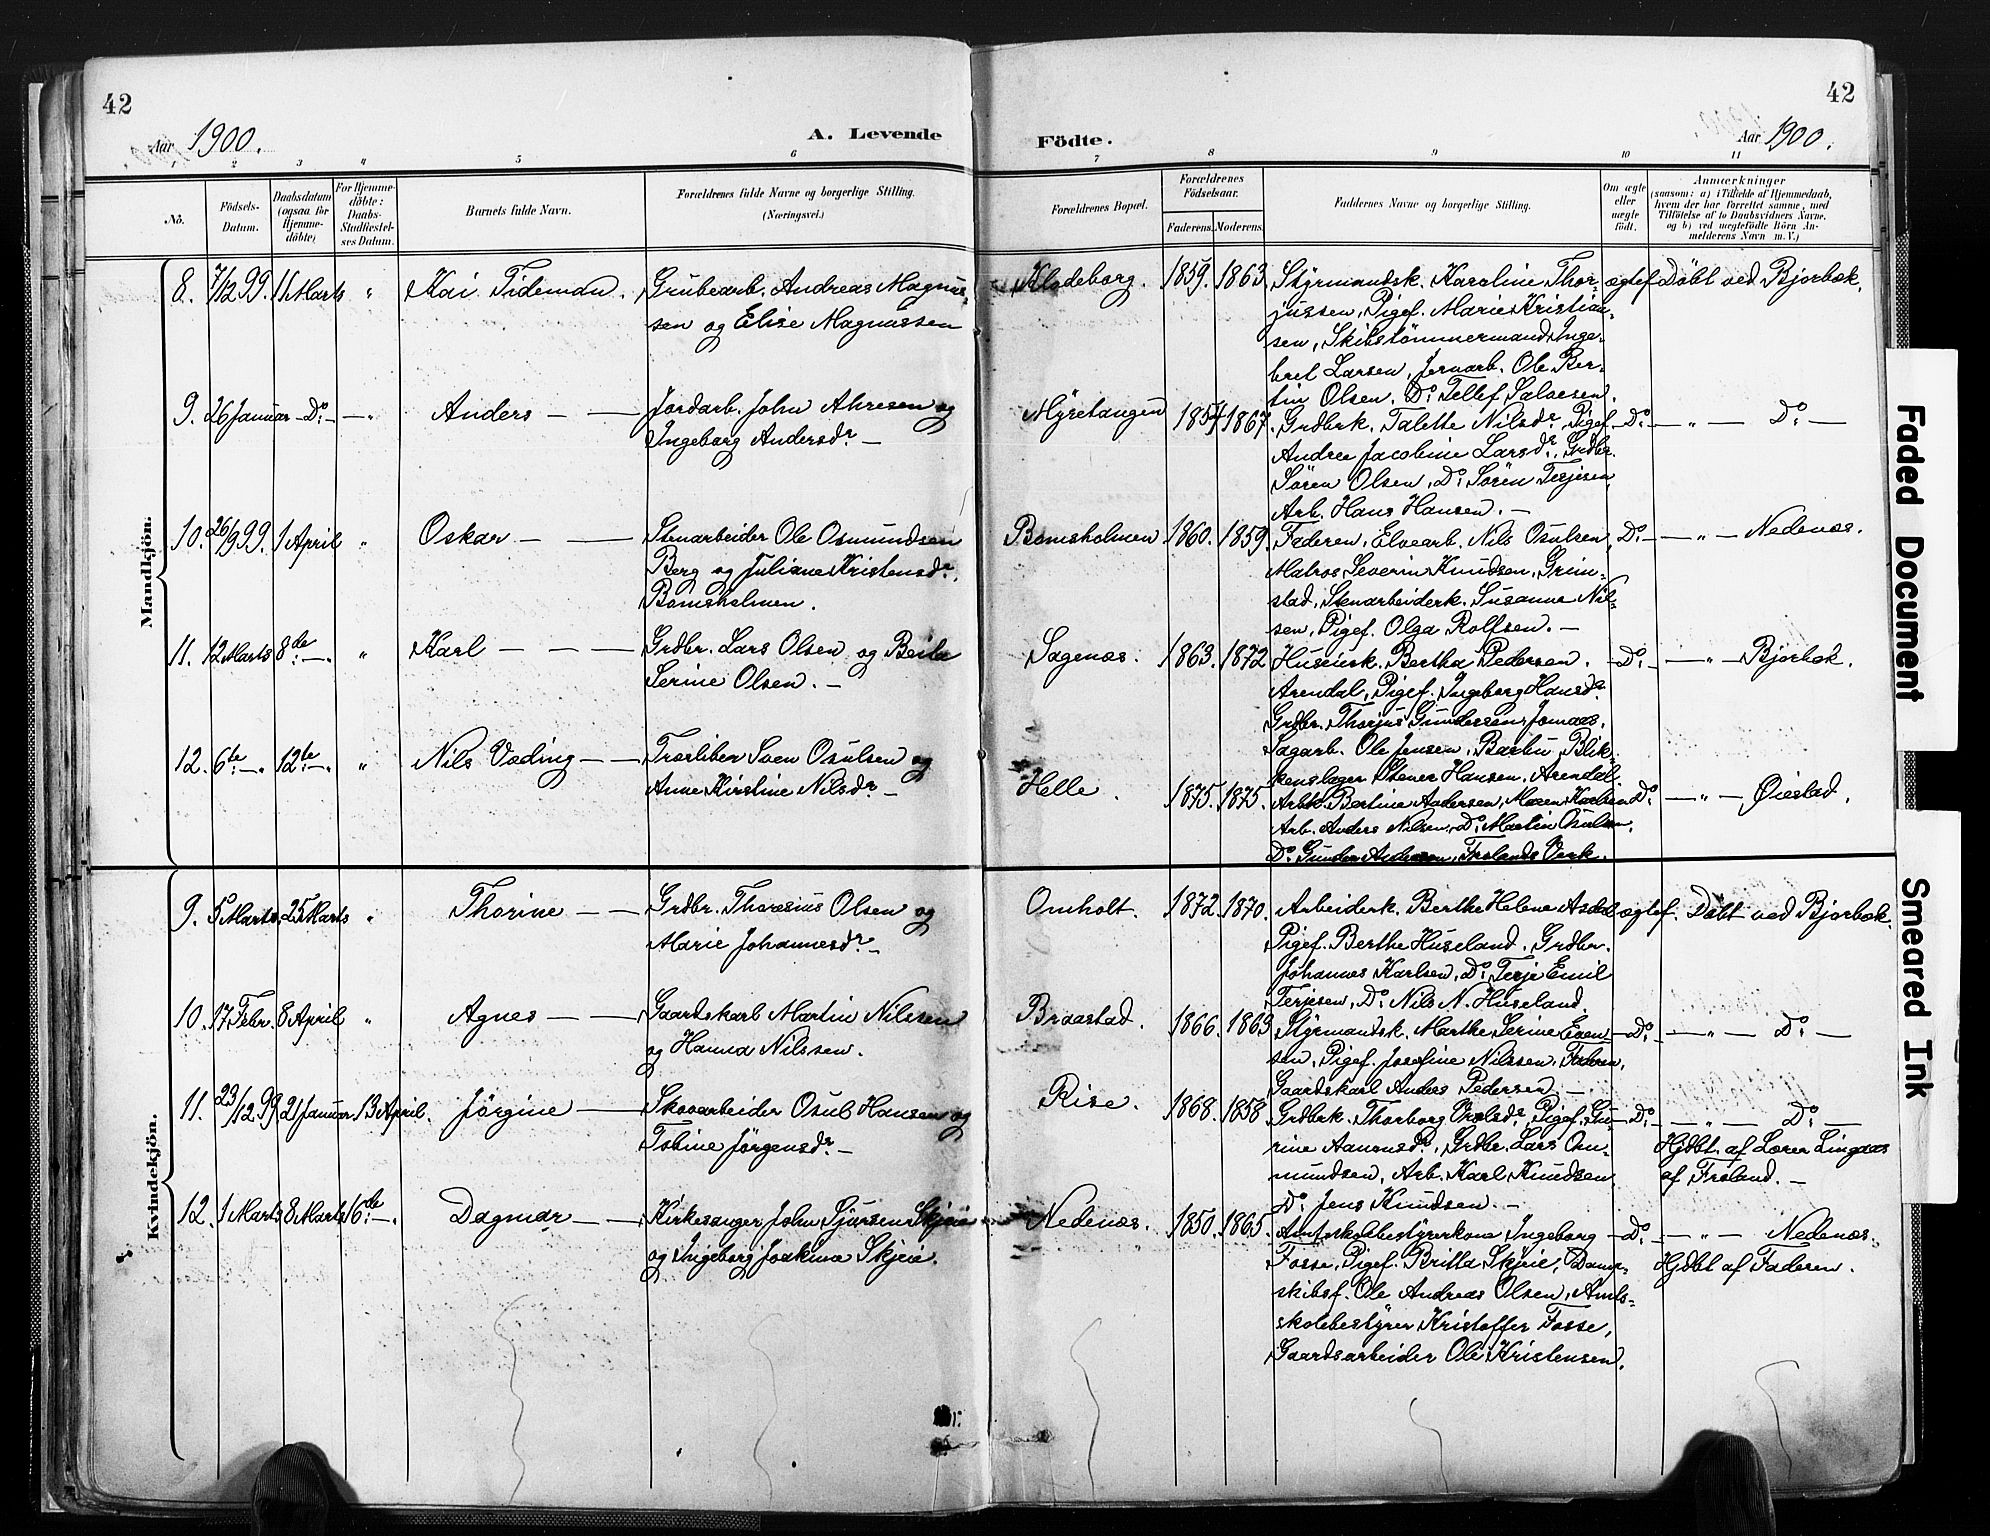 42
42
Aar 1900.
A. Levende
Födte.
Aar 1900.
1 2 3 4 5 6 7 8 9 10 11
No.
Födsels-Datum.
Daabsdatum (ogsaa for Hjemme-döbte)
For Hjemme-döbte: Daabs-Stadfæstel-ses Datum.
Barnets fulde Navn.
Forældrenes fulde Navne og borgerlige Stilling.
(Næringsvei.)
Forældrenes Bopæl.
Forældrenes Födselsaar.
Faderens. Moderens.
Faddernes Navne og borgerlige Stilling.
Om ægte eller uægte födt.
Anmærkninger
(saasom: a) i Tilfælde af Hjemmedaab,
hvem der har forrettet samme, med
Tilföielse af to Daabsvidners Navne.
og b) ved uægtefödte Börn An-
melderens Navn m. V.)
Mandkjön.
8. 7/12 99. 11 Marts " Kai Tideman. Grubearb. Andreas Magnus-
sen og Elise Magnussen
Klodeborg. 1859. 1863. Styrmandsk. Karoline Thor-
jussen, Pigef. Marie Kristian-
sen, Skibstömmermand Inge-
bret Larsen, Jernarb. Ole Ber-
tin Olsen. Do: Tellef Salvesen.
ægtef. Döbt ved Bjorbæk.
9. 26 Januar - Do: - " Anders - - Jordarb. John Ahresen og
Ingeborg Andersdr. -
Myretangen 1854 1867. Grdbrk. Talette Nilsdr. Pigef.
Andrea Jacobine Larsdr., Grdbr.
Sören Olsen, Do: Sören Terjesen,
Arb. Hans Hansen. -
- Do: - " - Do: -
10. 26/9 99. 1 April " Oskar - - Stenarbeider Ole Osmundsen
Berg og Juliane Kristensdr.,
Bomsholmen.
Bomsholmen 1860. 1859. Faderen, Elvearb. Nils Osulsen,
Matros Severin Knudsen, Grim-
stad, Stenarbeiderk. Susanne Nil-
sen, Pigef. Olga Rolfsen. -
Do: - " - Nedenæs.
11. 12 Marts 8de: - " Karl - - - Grdbr. Lars Olsen og Berte
Serine Olsen. -
Sagenæs. 1863. 1872. Huseierk. Bertha Pedersen.
Arendal, Pigef. Ingeborg Hansdr.
Grdbr. Thorjus Gundersen, Jomaas.
Sagarb. Ole Jensen, Barbu, Blik-
kenslager Stener Hansen, Arendal.
- Do: - " - Bjorbæk.
12. 6te: - " 12te: - " Nils Væding - - Træsliber Sven Osulsen og
Anne Kirstine Nilsdr. -
Helle. 1875. 1875. Arbk. Bertine Andersen, Maren Karlsen
Arb. Anders Nilsen, Do: Martin Osulsen,
Do: Gunder Andersen, Frolands Verk.
Do: - " - Öiestad.
Kvindekjön.
9. 5 Marts 25 Marts " Thorine - - Grdbr. Thoresius Olsen og
Marie Johannesdr. -
Omholt. 1872. 1870. Arbeiderk. Berthe Helene Asdal
Pigef. Berthe Huseland, Grdbr.
Johannes Karlsen, Do: Terje Emil
Terjesen, Do: Nils N. Huseland.
ægtef. Döbt ved Bjorbæk.
10. 17 Febr. 8 April " Agnes - - Gaardskarl Martin Nilssen
og Hanna Nilssen.
Braastad. 1866. 1863 Styrmandsk. Marthe Serine Even-
sen, Pigef. Josefine Nilssen, Faderen,
Gaardskarl Anders Pedersen. -
- Do: - " - Do: -
11. 23/12 99. 21 Januar. 13 April. Jörgine - Skovarbeider Osul Hansen og
Tobine Jörgensdr. -
Rise. 1868. 1858 Grdbrk. Thorborg Oxelsdr., Pigef. Gu-
rine Aanonsdr., Grdbr. Lars Os-
mundsen, Arb. Karl Knudsen,
Do: Jens Knudsen. -
- Do: - " - Do: -
Hjdbt. af Lærer Lingaas
af Froland. -
12. 1 Marts 8 Marts 16de: - Dagmar - - Kirkesanger John Sjursen Skjeie
og Ingeborg Joakima Skjeie.
Nedenæs. 1850. 1865. Amtsskolebestyrerkone Ingeborg
Fosse, Pigef. Britta Skjeie, Damp-
skibsf. Ole Andreas Olsen, Amts-
skolebestyrer Kristoffer Fosse,
Gaardsarbeider Ole Kristensen.
- Do: - " - Nedenæs.
Hjdbt af Faderen.
Faded Document
Smeared Ink